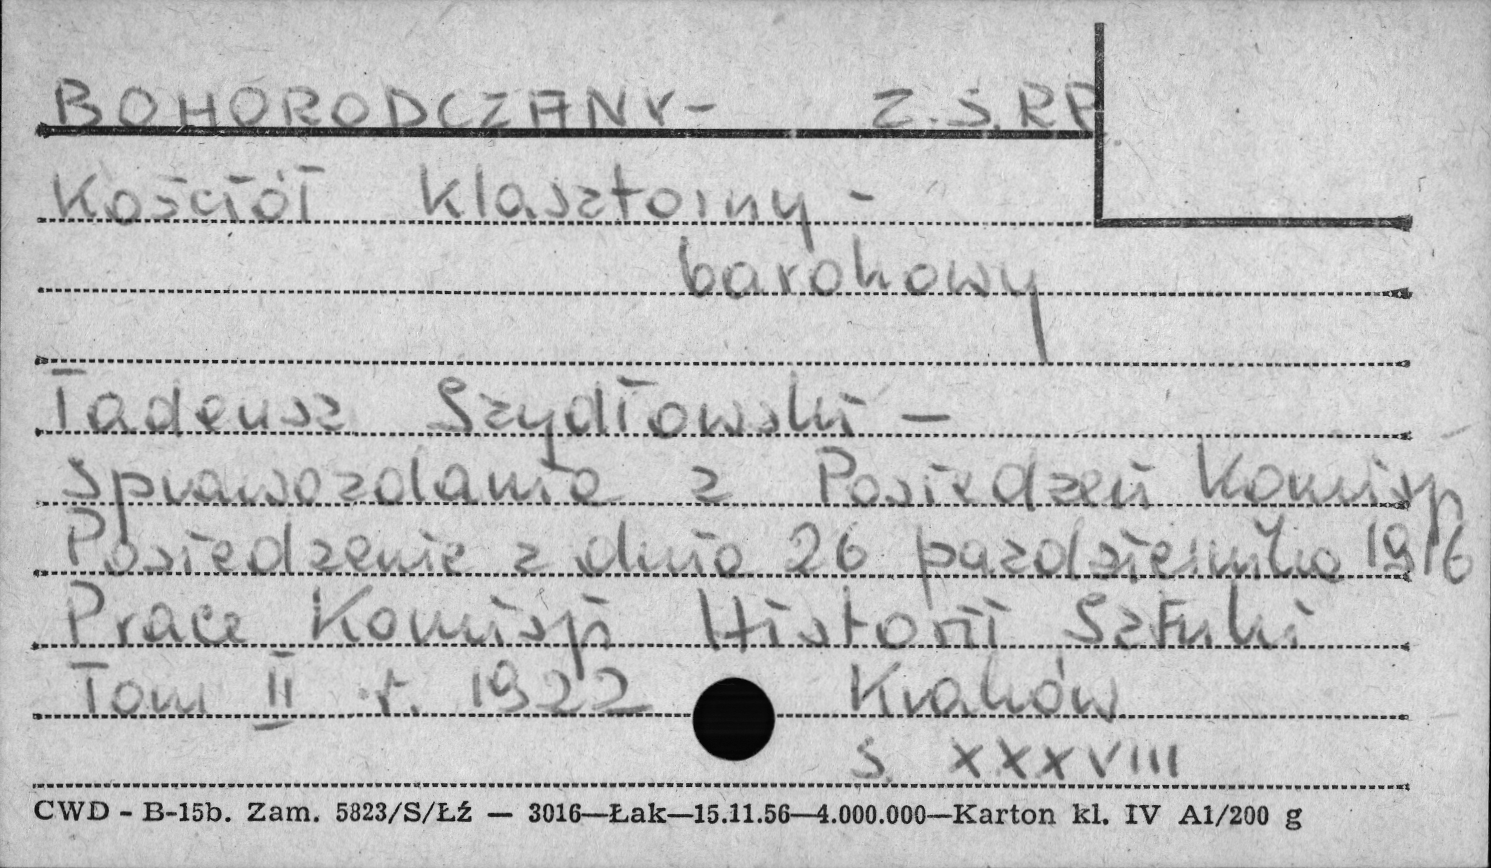 BOHORODCZANY - Z.S.R.R.
Kościół Klasztorny -
barokowy
Tadeusz Szydłowski -
Sprawozdania z Posiedzeń Komisji
Posiedzenie z dnia 26 pazdziernika 1916
Prace Komisji Historii Sztuki
Tom II r. 1922 Kraków
s. XXXVIII
CWD - B-15b. Zam. 5823/S/Łź — 3016—Łak—15.11.56—4.000.000—Karton kl. IV A1/200 g